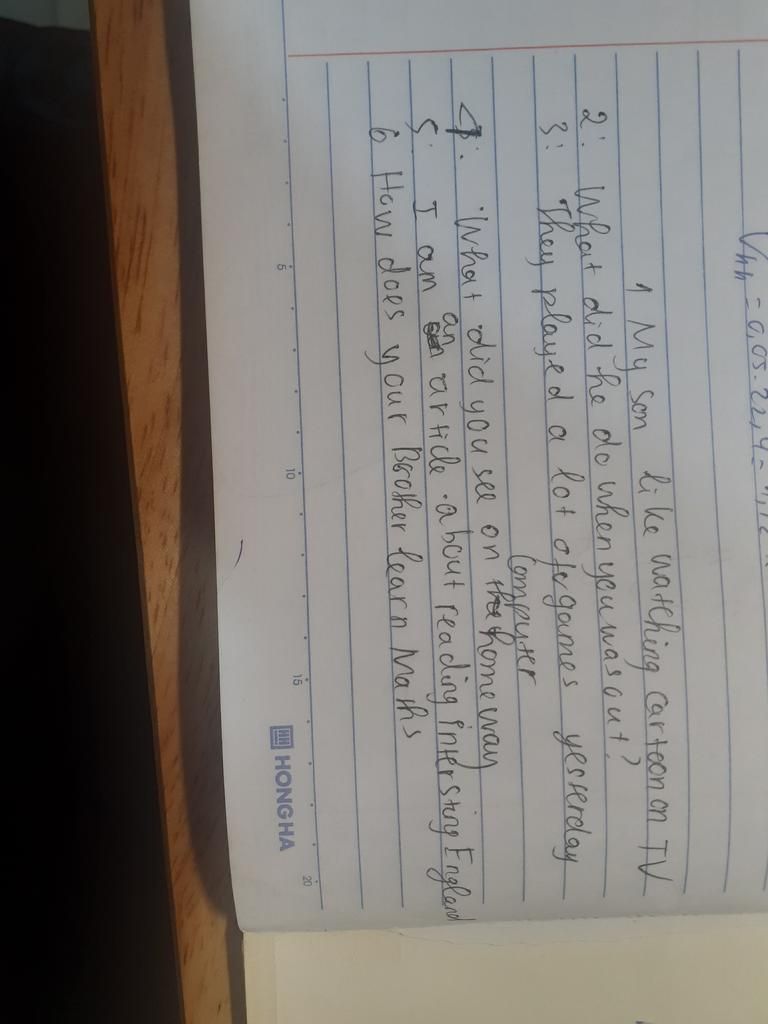 Vhh = 0,05.22,4 = 1,12
1 My son like watching cartoon on TV
2: What did he do when you was out?
3: They played a lot of games yesterday
computer
4: What did you see on the home way
5: I am an article about reading intersting England
6 How does your Brother learn Maths
5 10 15 20
HH HONG HA